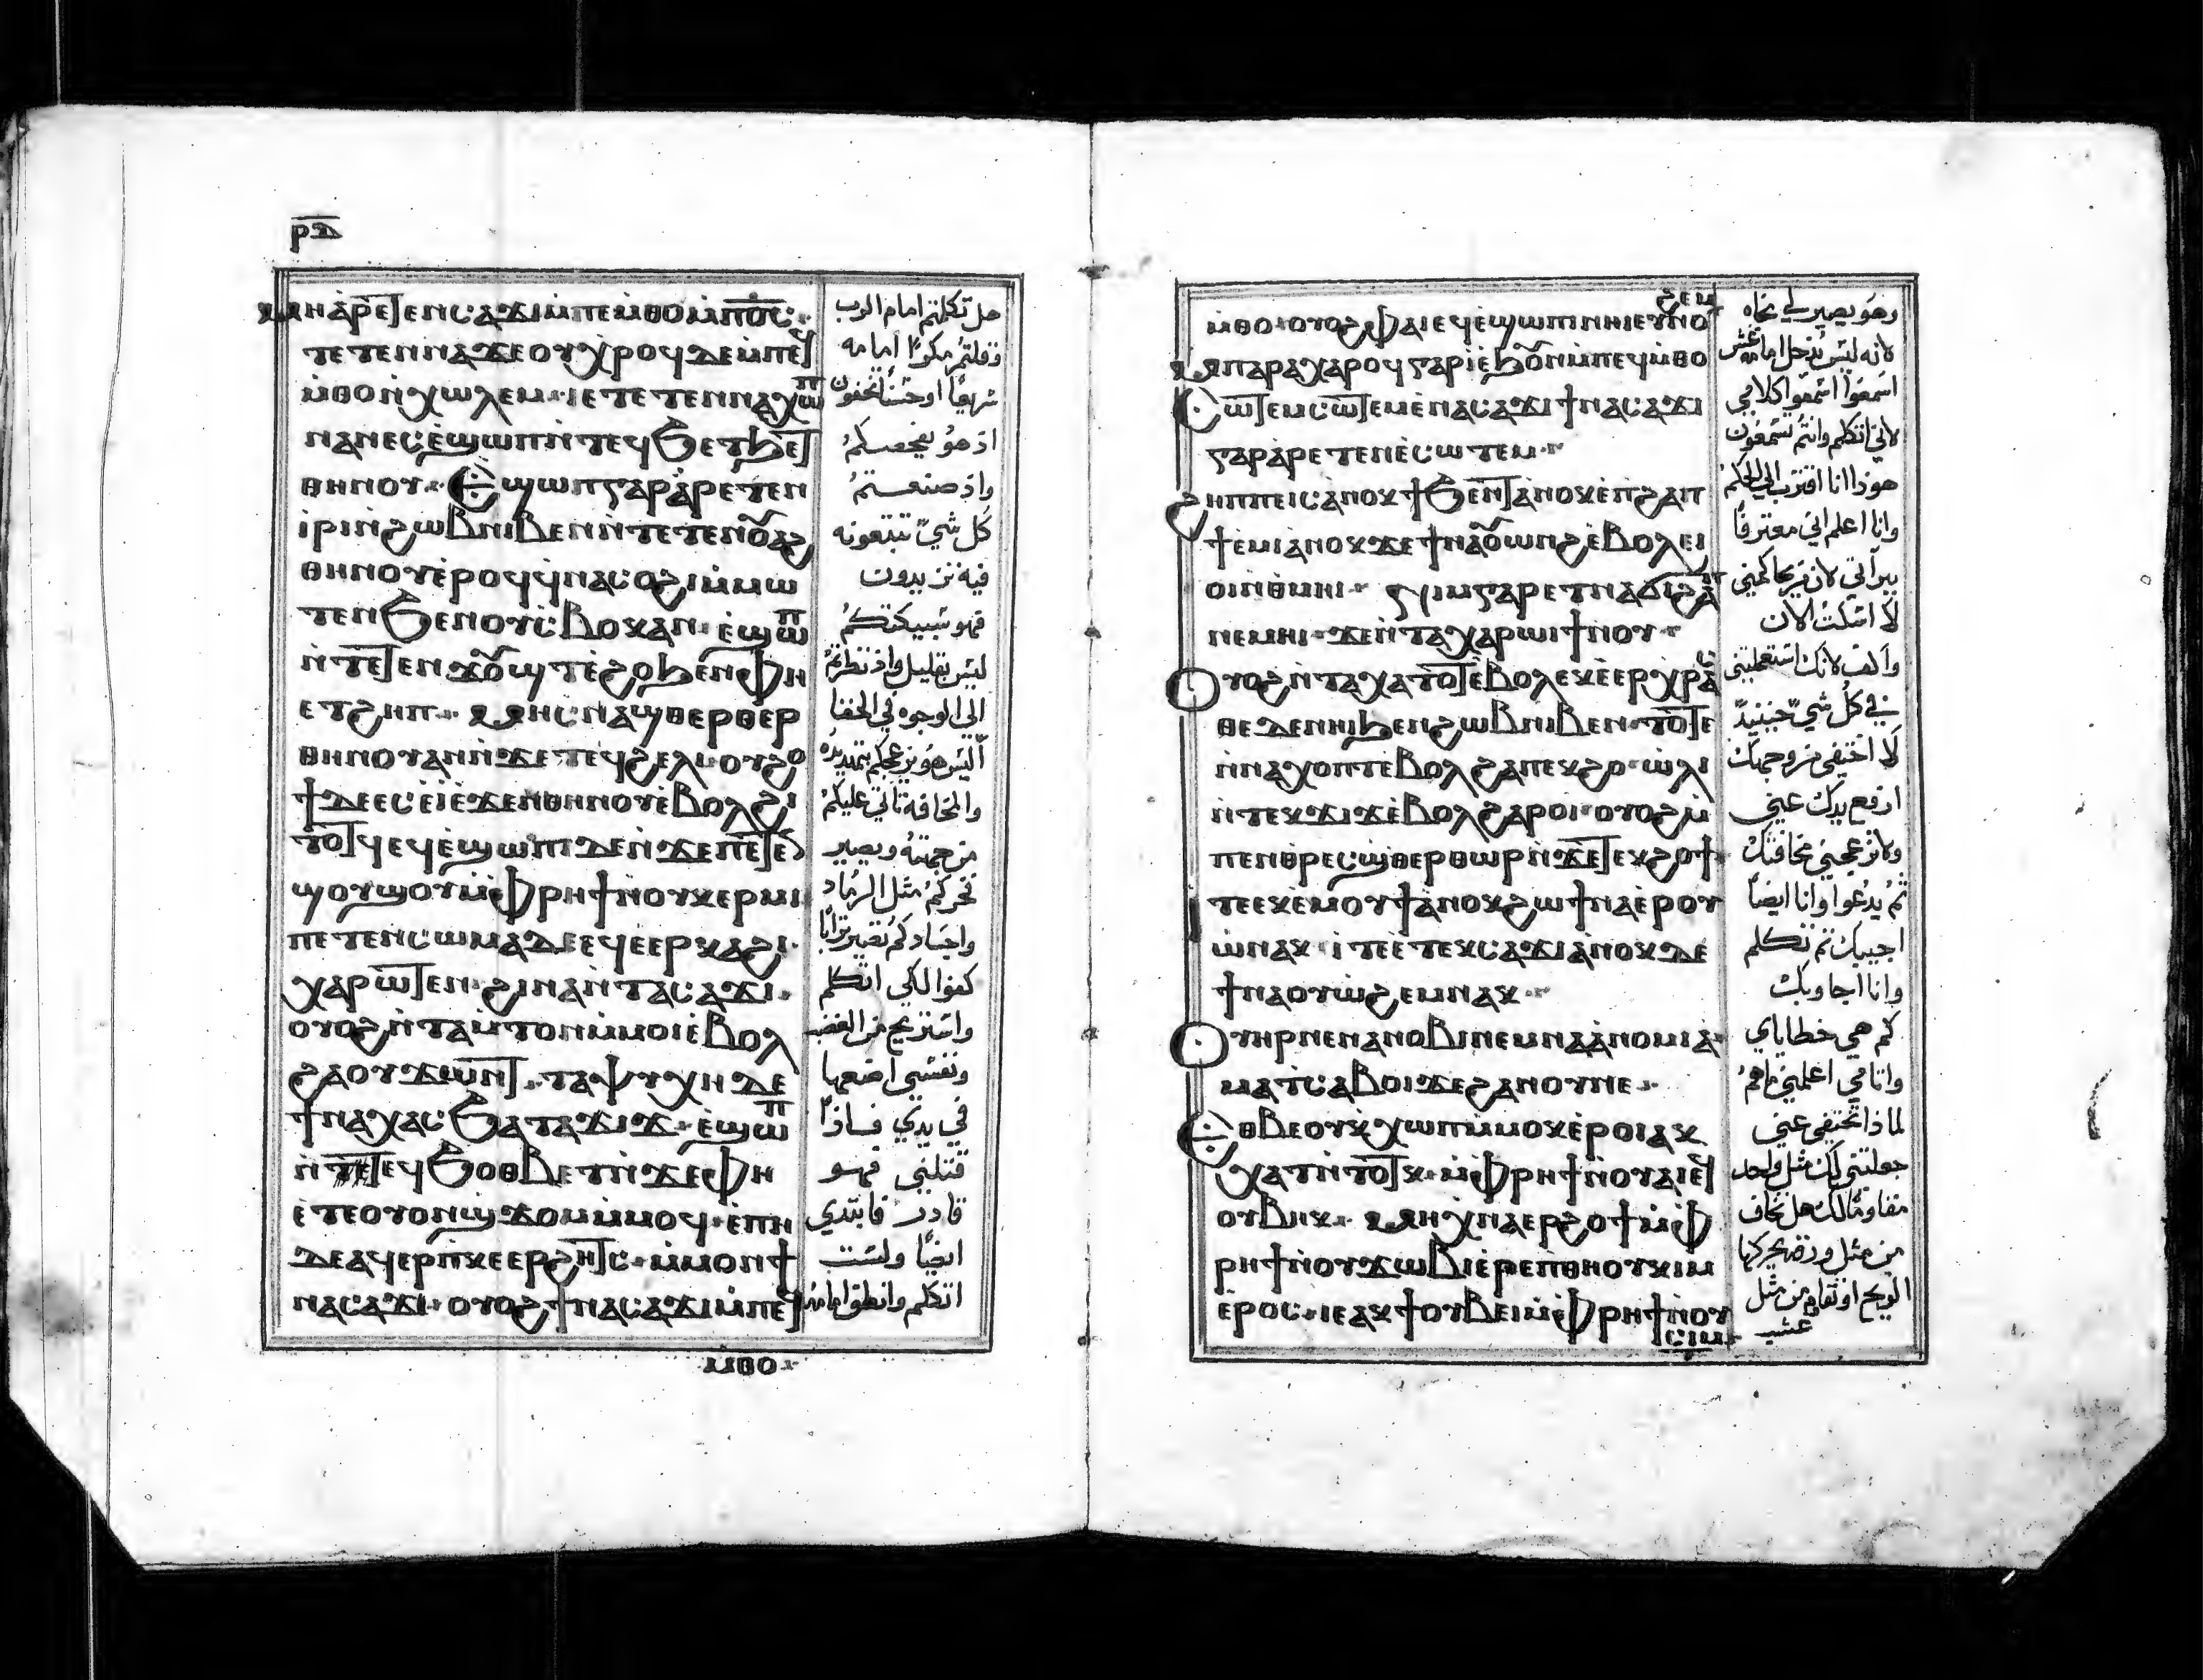 ⲣ̅ⲇ̅
ⲙⲏ ⲁⲣⲉⲧⲉⲛⲥⲁϫⲓ ⲙ̀ⲡⲉⲙ̀ⲑⲟ ⲙ̀ⲡⲟ̅ⲥ̅
ⲧⲉⲧⲉⲛⲛⲁϫⲉ ⲟⲩⲭⲣⲟϥ ⲇⲉ ⲙ̀ⲡⲉϥ
ⲙ̀ⲑⲟ ⲛ̀ⲭⲱⲗⲉⲙ· ⲓⲉ ⲧⲉⲧⲉⲛⲛⲁⲭⲱⲡ
ⲛⲁⲛⲉⲥ ⲉ̀ϣⲱⲡ ⲛ̀ⲧⲉϥϧⲉⲧϧⲉⲧ
ⲑⲏⲛⲟⲩ· Ⲉϣⲱⲡ ⲅⲁⲣ ⲁ̀ⲣⲉⲧⲉⲛ
ⲓⲣⲓ ⲛ̀ϩⲱⲃ ⲛⲓⲃⲉⲛ ⲛ̀ⲧⲉⲧⲉⲛⲟⲩⲁϩ
ⲑⲏⲛⲟⲩ ⲉ̀ⲣⲟϥ ϥ̀ⲛⲁⲥⲟϩⲓ ⲙ̀ⲙⲱ
ⲧⲉⲛ ϧⲉⲛ ⲟⲩⲥⲃⲟⲕ ⲁⲛ· ⲉ̀ϣⲱⲡ
ⲛ̀ⲧⲉⲧⲉⲛϫⲟⲩϣⲧ ⲉ̀ϩⲟ ϧⲉⲛ ⲫⲏ
ⲉⲧϩⲏⲡ· ⲙⲏ ⲥⲛⲁϣⲑⲉⲣⲑⲉⲣ
ⲑⲏⲛⲟⲩ ⲁⲛ ⲛ̀ϫⲉ ⲧⲉϥϩⲉⲗⲓ· ⲟⲩϩⲟ
ϯ ⲇⲉ ⲉⲥⲉ̀ⲓ̀ ⲉ̀ϫⲉⲛ ⲑⲏⲛⲟⲩ ⲉ̀ⲃⲟⲗϩⲓ
ⲧⲟⲧϥ ⲉϥⲉ̀ϣⲱⲡⲓ ⲇⲉ ⲛ̀ϫⲉ ⲡⲉⲧⲉⲛ
ϣⲟⲩϣⲟⲩ ⲙ̀ⲫⲣⲏϯ ⲛ̀ⲟⲩⲕⲉⲣⲙⲓ
ⲡⲉⲧⲉⲛⲥⲱⲙⲁ ⲇⲉ ⲉϥⲉ̀ⲉⲣⲕⲁϩⲓ·
ⲭⲁⲣⲱⲧⲉⲛ· ϩⲓⲛⲁ ⲛ̀ⲧⲁⲥⲁϫⲓ·
ⲟⲩⲟϩ ⲛ̀ⲧⲁⲙ̀ⲧⲟⲛ ⲙ̀ⲙⲟⲓ ⲉ̀ⲃⲟⲗ
ϩⲁ ⲟⲩϫⲱⲛⲧ· ⲧⲁⲯⲩⲭⲏ ⲇⲉ
ϯⲛⲁⲭⲁⲥ ϧⲁ ⲧⲁϫⲓϫ· ⲉ̀ϣⲱⲡ
ⲛ̀ⲧⲉϥϧⲟⲑⲃⲉⲧ ⲛ̀ϫⲉ ⲫⲏ
ⲉ̀ⲧⲉ ⲟⲩⲟⲛϣϫⲟⲙ ⲙ̀ⲙⲟϥ· ⲉ̀ⲡⲓⲇⲏ
ⲇⲉ ⲁϥⲉⲣⲡⲕⲉⲉⲣϩⲏⲧⲥ· ⲙ̀ⲙⲟⲛ ϯ
ⲛⲁⲥⲁϫⲓ· ⲟⲩⲟϩ ϯⲛⲁⲥⲁϫⲓ ⲙ̀ⲡⲉϥ
ⲙⲑⲟ·
هل تكلمتم امام الرب
وقلتم مكرًا امامه
اذ هو يفحصكم
واذ صنعتم
كل شي تتبعونه
فهو سيبكتكم
ليس بقليل واذ نظرتم
الي الوجوه في الخفا
اليس هو يزعجكم بتهديده
والمخافة تاتي عليكم
من جهته ويصير
فخركم مثل الرماد
واجسادكم تصير ترابًا
كفوا لكي اتكلم
واستريح من الغضب
ونفسي اضعها
في يدي فاذا
قتلني فهو
قادر فابتدي
ايضًا ولست
اتكلم وانطق امامه
ⲙ̀ⲑⲟ· ⲟⲩⲟϩ ⲫⲁⲓ ⲉϥⲉ̀ϣⲱⲡⲓ ⲛⲏⲓ ⲉⲩⲛⲟϩⲉⲙ
ⲙ̀ⲡⲁⲣⲁ ⲭⲣⲟϥ ⲅⲁⲣ ⲓ̀ ⲉ̀ϧⲟⲩⲛ ⲙ̀ⲡⲉϥⲙ̀ⲑⲟ
Ⲥⲱⲧⲉⲙ ⲥⲱⲧⲉⲙ ⲉ̀ⲛⲁⲥⲁϫⲓ ϯⲛⲁⲥⲁϫⲓ
ⲅⲁⲣ ⲁ̀ⲣⲉⲧⲉⲛⲉ̀ⲥⲱⲧⲉⲙ·
ϩⲏⲡⲡⲉ ⲓⲥ ⲁ̀ⲛⲟⲕ ϯϧⲉⲛⲧ ⲁ̀ⲛⲟⲕ ⲉ̀ⲡϩⲁⲡ
ϯⲉ̀ⲙⲓ ⲁ̀ⲛⲟⲕ ϫⲉ ϯⲛⲁⲟⲩⲱⲛϩ ⲉ̀ⲃⲟⲗ ⲉⲓ
ⲟⲓ ⲛ̀ⲑⲙⲏⲓ· ⲅⲛⲓⲙ ⲅⲁⲣ ⲉⲧⲛⲁϭⲓϩⲁⲡ
ⲛⲉⲙⲏⲓ· ϫⲉ ⲛ̀ⲧⲁⲭⲁⲣⲱⲓ ϯⲛⲟⲩ·
Ⲟⲩⲟϩ ⲛ̀ⲧⲁⲭⲁⲧⲟⲧ ⲉ̀ⲃⲟⲗ ⲉⲕⲉ̀ⲉⲣⲭⲣⲁ
ⲑⲉ ⲇⲉⲛⲏⲓ ϧⲉⲛ ϩⲱⲃ ⲛⲓⲃⲉⲛ· ⲧⲟⲧⲉ
ⲛ̀ⲛⲁⲭⲟⲡⲧ ⲉⲃⲟⲗ ϩⲁ ⲡⲉⲕϩⲟ· ⲱ̀ⲗⲓ
ⲛ̀ⲧⲉⲕϫⲓϫ ⲉ̀ⲃⲟⲗ ϩⲁⲣⲟⲓ· ⲟⲩⲟϩ ⲙ̀
ⲡⲉⲛⲑⲣⲉⲥϣ̀ⲑⲉⲣⲑⲱⲣⲓ ⲛ̀ϫⲉ ⲧⲉⲕϩⲟϯ·
ⲧⲉ ⲉⲕⲉ̀ⲙⲟⲩϯ ⲁ̀ⲛⲟⲕ ϩⲱ ϯⲛⲁⲉ̀ⲣⲟⲩ
ⲱ̀ ⲛⲁⲕ· ⲓⲧⲉ ⲉⲧⲉⲕⲥⲁϫⲓ ⲁ̀ⲛⲟⲕ ⲇⲉ
ϯⲛⲁⲟⲩⲱϩⲉⲙ ⲛⲁⲕ·
Ⲟⲩⲏⲣ ⲛⲉ ⲛⲁⲛⲟⲃⲓ ⲛⲉⲙ ⲛⲁⲁ̀ⲛⲟⲙⲓⲁ̀·
ⲙⲁⲧⲥⲁⲃⲟⲓ ϫⲉ ϩⲁⲛⲟⲩ ⲛⲉ·
Ⲉⲑⲃⲉ ⲟⲩ ⲕ̀ⲭⲱⲡ ⲙ̀ⲙⲟⲕ ⲉ̀ⲣⲟⲓ ⲁⲕ
ⲭⲁⲧ ⲛ̀ⲧⲟⲧⲕ· ⲙ̀ⲫⲣⲏϯ ⲛ̀ⲟⲩⲁⲓ ⲉϥϯ
ⲟⲩⲃⲏⲕ· ⲙⲏ ⲭⲛⲁⲉⲣϩⲟϯ ⲙ̀ⲫ
ⲣⲏϯ ⲛ̀ⲟⲩϫⲱⲃⲓ ⲉ̀ⲣⲉ ⲡⲑⲏⲟⲩ ⲕⲓⲙ
ⲉ̀ⲣⲟⲥ· ⲓⲉ ⲁⲕϯ ⲟⲩⲃⲏⲓ ⲙ̀ⲫⲣⲏϯ ⲛ̀ⲟⲩ
ⲥⲓⲙ·
وهو يصير لي نجاه
لانه ليس يدخل امامه غش
اسمعوا اسمعوا كلامي
لاني اتكلم وانتم تسمعون
هوذا انا اقترب الي الحكم
وانا اعلم اني معترفًا
لا اسكت الان
في كل شي حينيذ
لا اختفي من وجهك
ارفع يدك عني
ولا تزعجني مخافتك
ثم يدعوا وانا ايضًا
اجيبك ثم تتكلم
وانا اجاوبك
كم هي خطاياي
واثامي اعلمني ماهم
لماذا تختفي عني
جعلتني لك مثل واحد
مقاومًا لك هل تخاف
من مثل ورقه يحركها
الريح او تقاوم من مثل
عشب